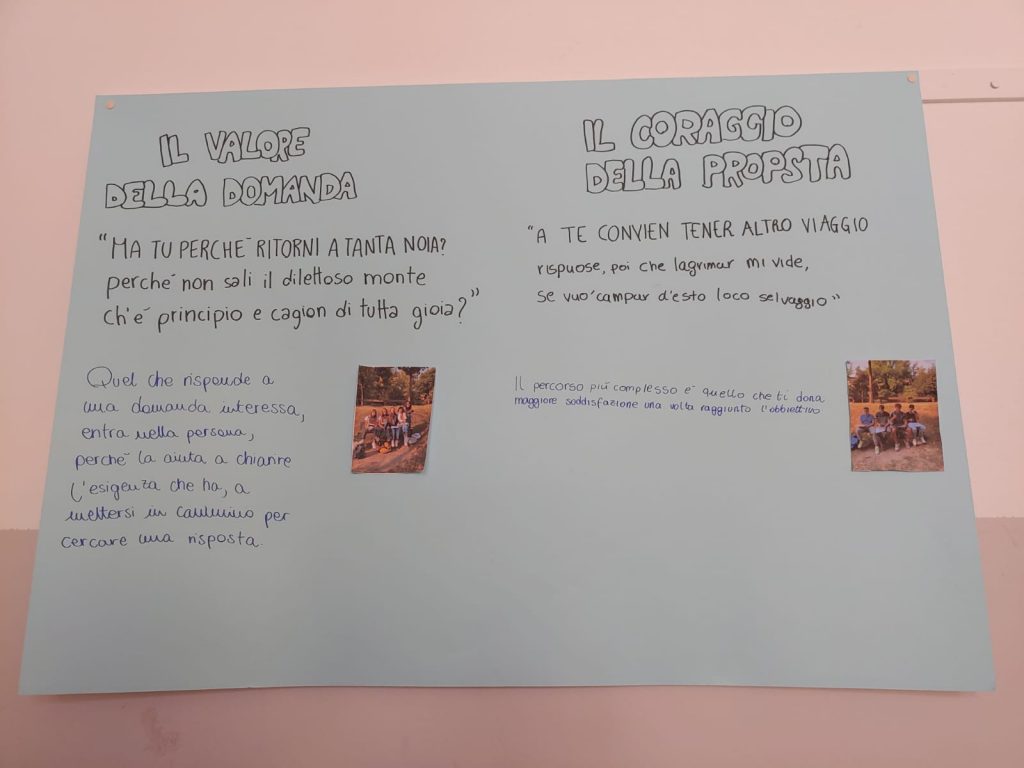 IL VALORE
DELLA DOMANDA
"MA TU PERCHE' RITORNI A TANTA NOIA?
perche' non sali il dilettoso monte
ch'e' principio e cagion di tutta gioia?"
Quel che risponde a
una domanda interessa,
entra nella persona,
perche' la aiuta a chiarire
l'esigenza che ha, a
mettersi in cammino per
cercare una risposta.
IL CORAGGIO
DELLA PROPSTA
"A TE CONVIEN TENER ALTRO VIAGGIO
rispuose, poi che lagrimar mi vide,
se vuo' campar d'esto loco selvaggio"
Il percorso più complesso e' quello che ti dona
maggiore soddisfazione una volta raggiunto l'obbiettivo